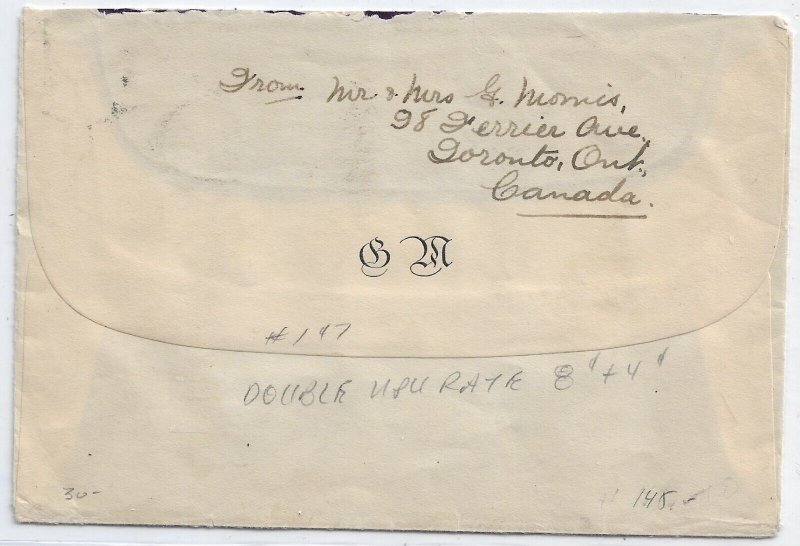 From Mr. & Mrs G. Morris,
98 Ferrier Ave.,
Toronto, Ont.,
Canada.
G M
#147
DOUBLE UPU RATE 8¢+4¢
30-
145.-